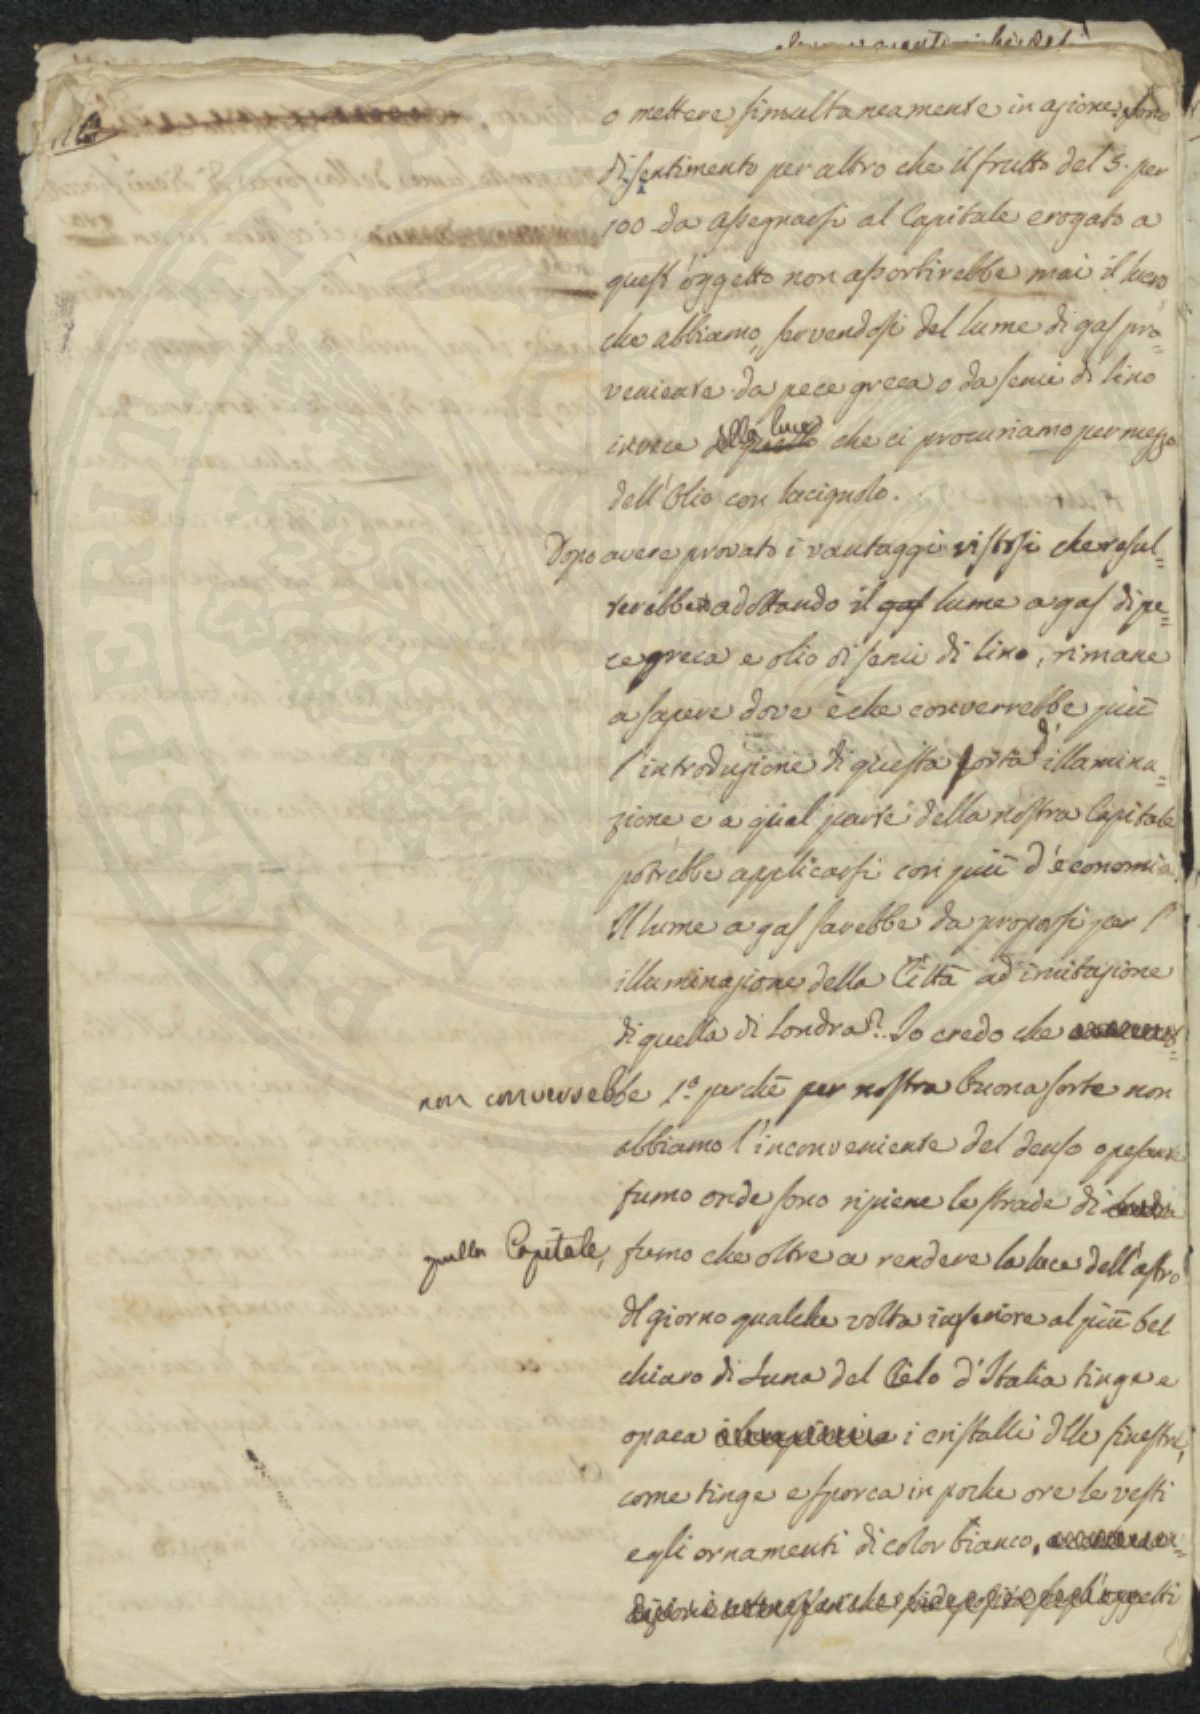 o mettere simultaneamente in azione. Sono
di sentimento per altro che il frutto del 5. per
100 da assegnarsi al Capitale erogato a
quest'oggetto non assorbirebbe mai il lucro
che abbiamo, servendosi del lume di gas pro=
veniente da pece greca o da semi di lino
invece della luce che ci procuriamo per mezzo
dell'Olio con lucignolo.
Dopo avere provato i vantaggi vistosi che resul=
terebbero adottando il gas lume a gas di pe=
ce greca e olio di semi di lino, rimane
a sapere dove è che converrebbe più
l'introduzione di questa sorta d'illumina=
zione e a qual parte della nostra Capitale
potrebbe applicarsi con più d'economia.
Il lume a gas sarebbe da proporsi per l'
illuminazione della Città ad imitazione
di quella di Londra? Io credo che
non converrebbe 1.º perchè per nostra buona sorte non
abbiamo l'inconveniente del denso e pesante
fumo onde sono ripiene le strade di Londra
quella Capitale, fumo che oltre a rendere la luce dell'astro
del giorno qualche volta inferiore al più bel
chiaro di Luna del Cielo d'Italia tinge e
opaca i cristalli delle finestre,
come tinge e sporca in poche ore le vesti
e gli ornamenti di color bianco,
oggetti